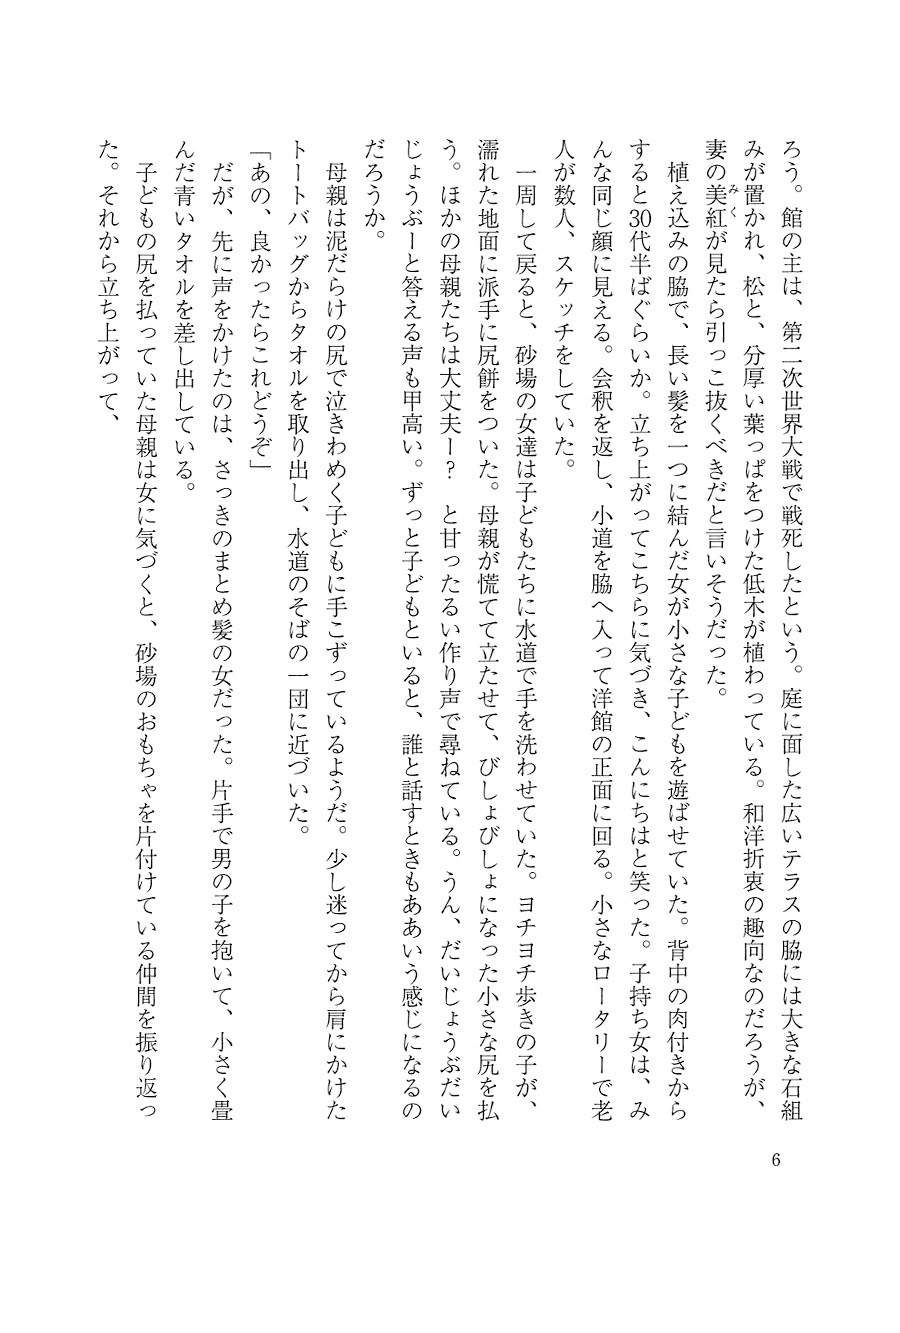 ろう。館の主は、第二次世界大戦で戦死したという。庭に面した広いテラスの脇には大きな石組
みが置かれ、松と、分厚い葉っぱをつけた低木が植わっている。和洋折衷の趣向なのだろうが、
妻の美紅が見たら引っこ抜くべきだと言いそうだった。
みく
　植え込みの脇で、長い髪を一つに結んだ女が小さな子どもを遊ばせていた。背中の肉付きから
すると30代半ばぐらいか。立ち上がってこちらに気づき、こんにちはと笑った。子持ち女は、み
んな同じ顔に見える。会釈を返し、小道を脇へ入って洋館の正面に回る。小さなロータリーで老
人が数人、スケッチをしていた。
　一周して戻ると、砂場の女達は子どもたちに水道で手を洗わせていた。ヨチヨチ歩きの子が、
濡れた地面に派手に尻餅をついた。母親が慌てて立たせて、びしょびしょになった小さな尻を払
う。ほかの母親たちは大丈夫ー？　と甘ったるい作り声で尋ねている。うん、だいじょうぶだい
じょうぶーと答える声も甲高い。ずっと子どもといると、誰と話すときもああいう感じになるの
だろうか。
　母親は泥だらけの尻で泣きわめく子どもに手こずっているようだ。少し迷ってから肩にかけた
トートバッグからタオルを取り出し、水道のそばの一団に近づいた。
「あの、良かったらこれどうぞ」
　だが、先に声をかけたのは、さっきのまとめ髪の女だった。片手で男の子を抱いて、小さく畳
んだ青いタオルを差し出している。
　子どもの尻を払っていた母親は女に気づくと、砂場のおもちゃを片付けている仲間を振り返っ
た。それから立ち上がって、
6